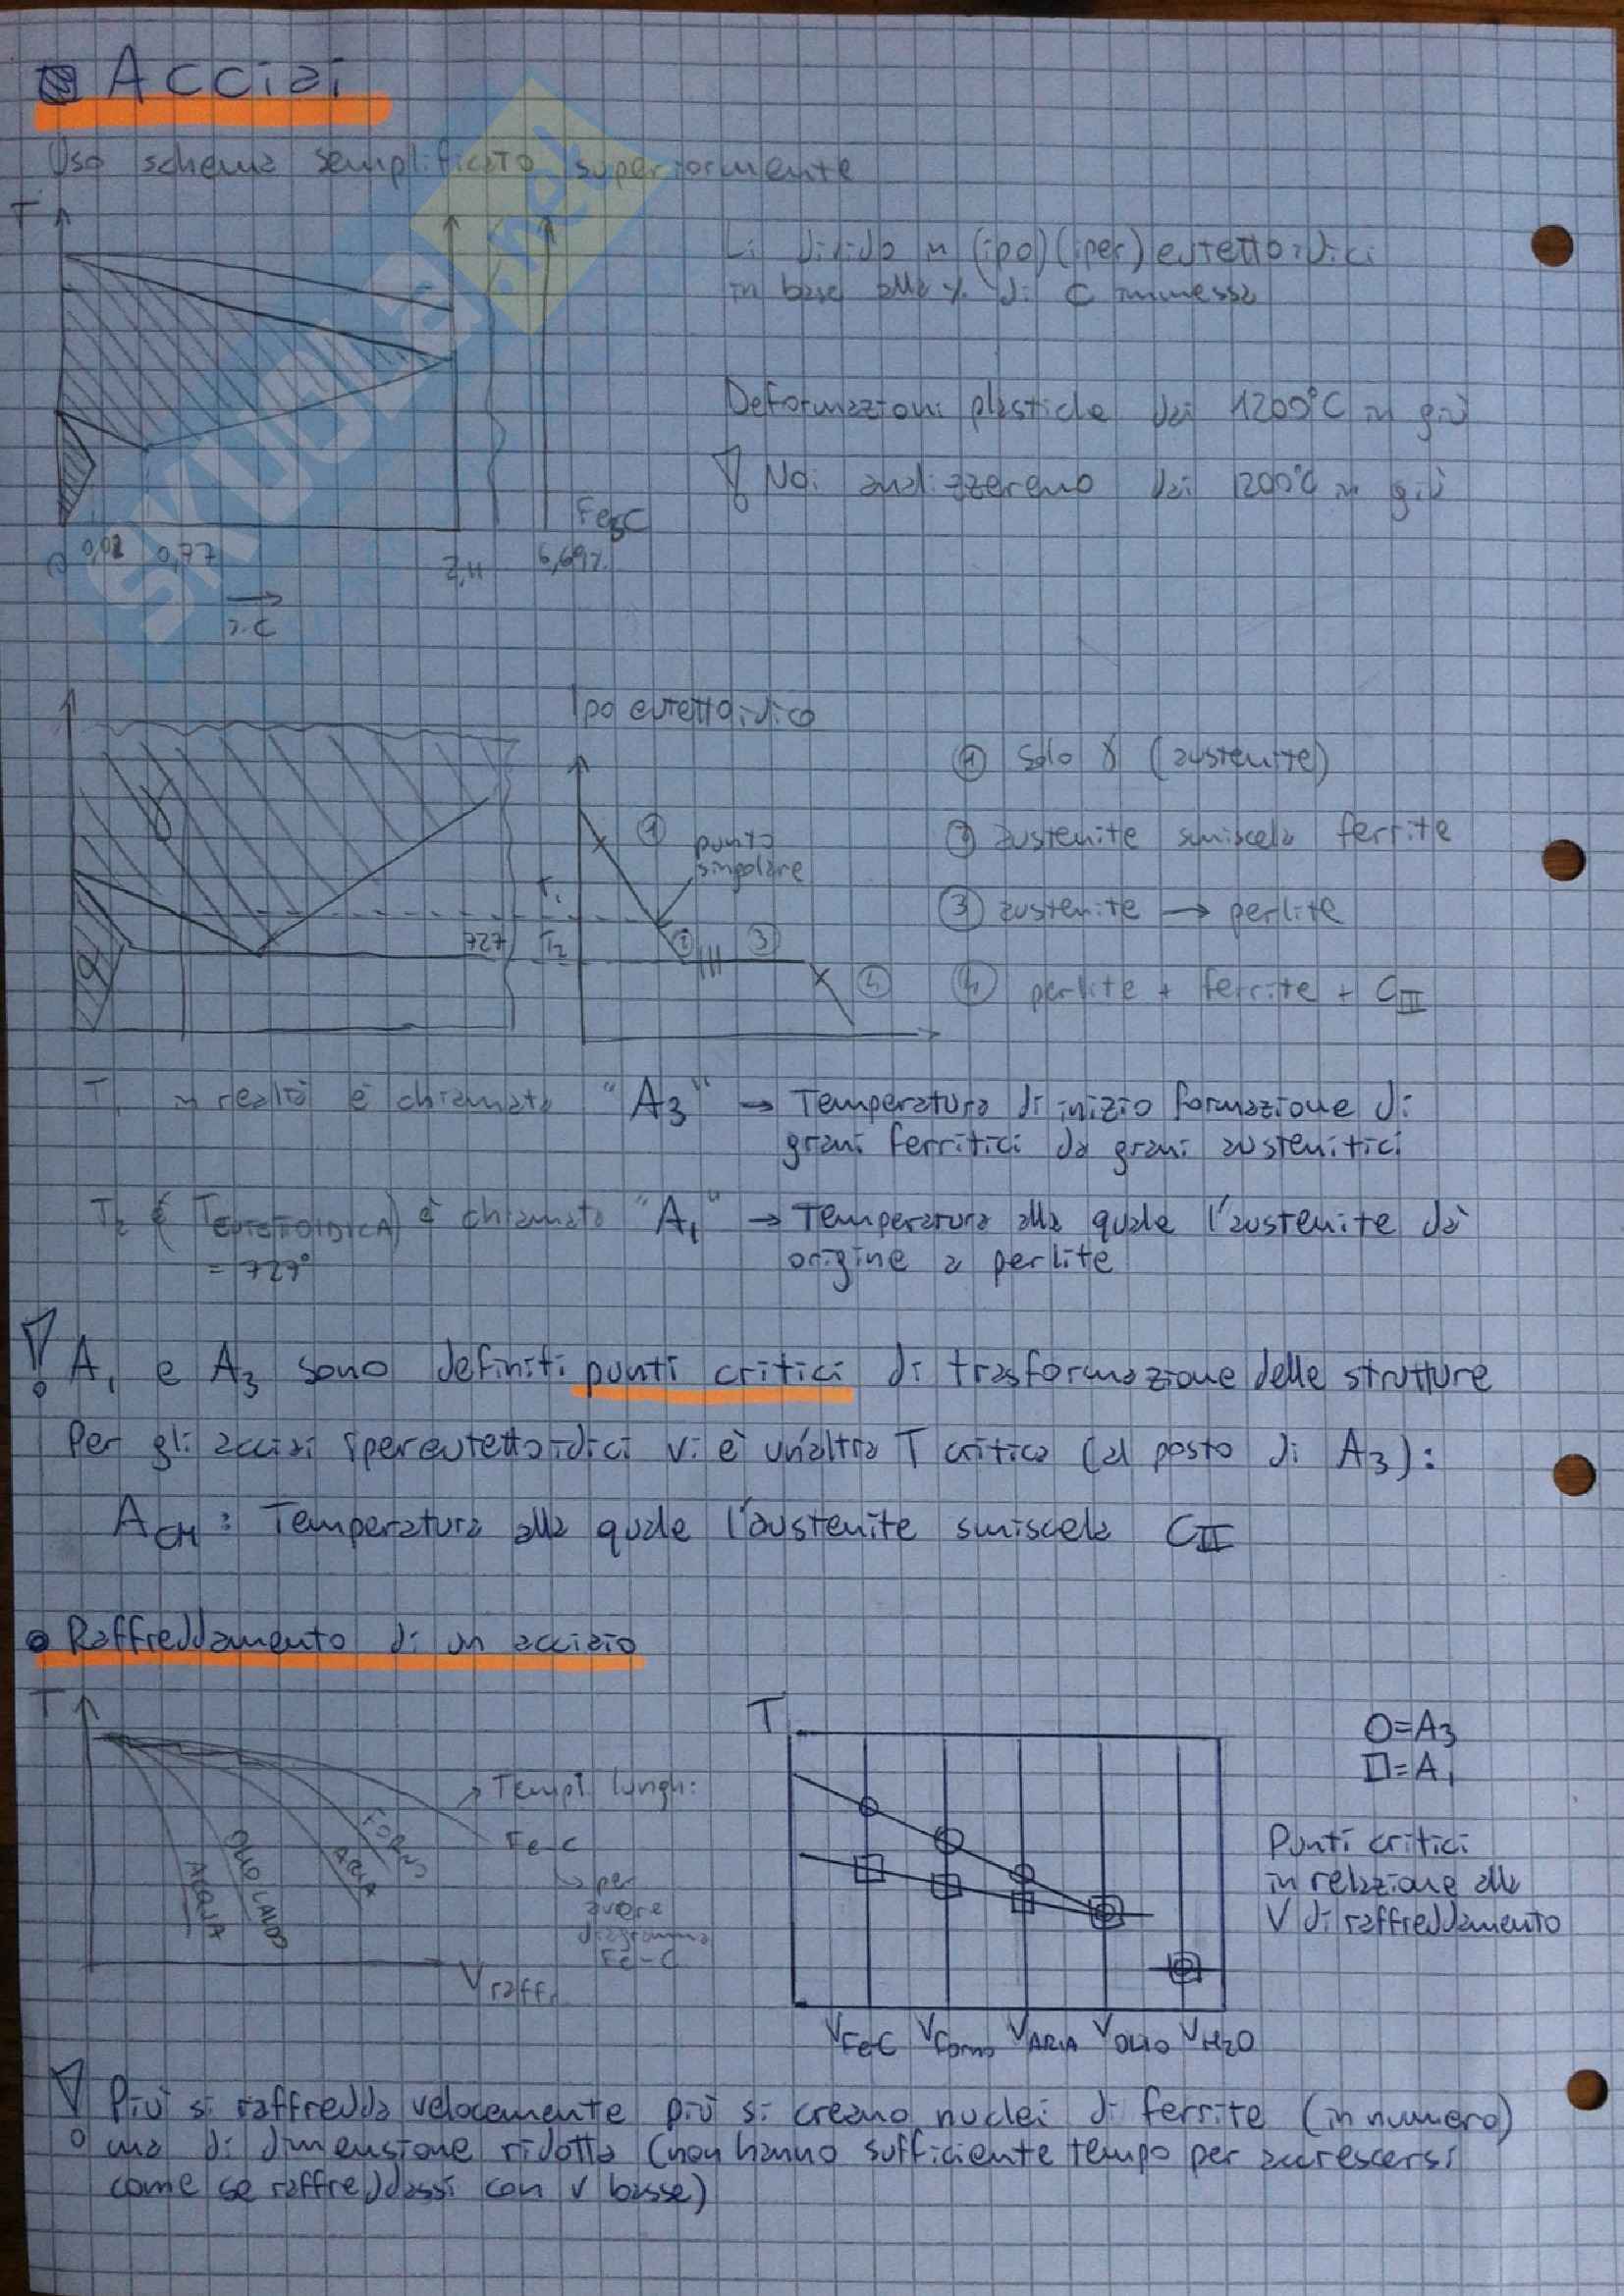 Acciai
Uso schema semplificato superiormente
T
Li divido in (ipo)(iper)eutettoidici
in base alla % di C immessa
Deformazioni plastiche dai 1200°C in giù
Noi analizzeremo dai 1200°C in giù
Fe3C
0 0,02 0,77 2,11 6,69%
% C
SKUOLA.net
Ipoeutettoidico
γ
α
727
T1
T2
1
punto
singolare
2
3
4
① Solo γ (austenite)
② austenite smiscela ferrite
③ austenite → perlite
④ perlite + ferrite + CIII
T1 in realtà è chiamata "A3" → Temperatura di inizio formazione di
grani ferritici da grani austenitici
T2 (TEUTETTOIDICA) è chiamata "A1" → Temperatura alla quale l'austenite dà
= 727°
origine a perlite
A1 e A3 sono definiti punti critici di trasformazione delle strutture
Per gli acciai ipereutettoidici vi è un'altra T critica (al posto di A3):
ACM: Temperatura alla quale l'austenite smiscela CII
Raffreddamento di un acciaio
T
Tempi lunghi
Fe-C
per
avere
diagramma
Fe-C
FORNO
ARIA
OLIO
ACQUA
Vraff.
T
O=A3
□=A1
Punti critici
in relazione alla
V di raffreddamento
VFeC VForno VARIA VOLIO VH2O
Più si raffredda velocemente più si creano nuclei di ferrite (in numero)
ma di dimensione ridotta (non hanno sufficiente tempo per accrescersi
come se raffreddassi con v basse)